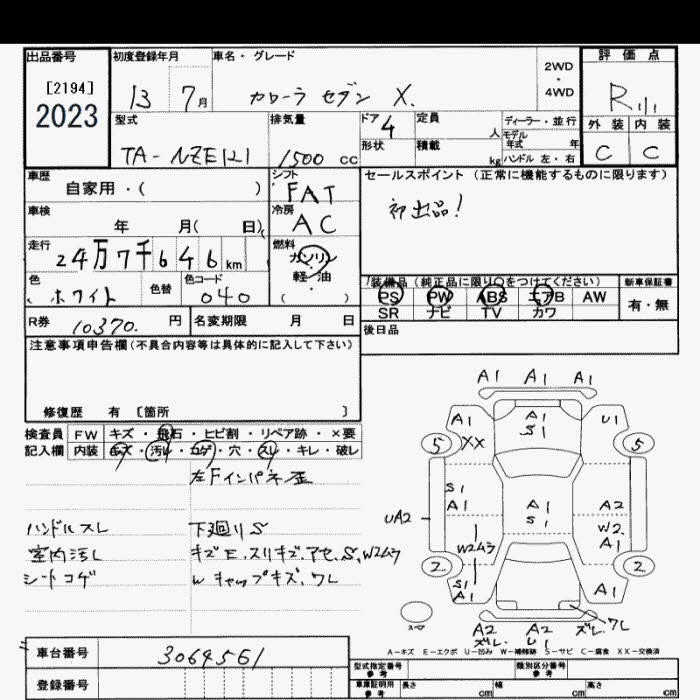 出品番号 初度登録年月 車名・グレード 評価点
[2194]
2023
13 7月 カローラ セダン X. 2WD・4WD R
外装 内装
C C
型式 排気量 ドア 定員 ディーラー・並行
TA-NZE121 1500 cc 4 人 モデル年式 年
形状 積載 kg ハンドル 左・右
車歴 シフト セールスポイント (正常に機能するものに限ります)
自家用・( ) FAT
初出品!
車検 冷房
年 月( 日) AC
走行 燃料
24万7千646km ガソリン
軽・油
( )
色 色替 色コード
ホワイト 040
装備品 (純正品に限り○をつけてください) 新車保証書
PS PW ABS エアB AW 有・無
SR ナビ TV カワ
R券 10370. 円 名変期限 月 日
後日品
注意事項申告欄(不具合内容等は具体的に記入して下さい)
修復歴 有 [箇所 ]
検査員 FW キズ・飛石・ヒビ割・リペア跡・×要
記入欄 内装 キズ・汚レ・コゲ・穴・スレ・キレ・破レ
左Fインパネ歪
ハンドルスレ 下廻りS
室内汚レ キズE.スリキズ.アセ.S.W2ムラ
シートコゲ Wキャップキズ.ワレ
A1 A1 A1
A1 A1 S1 U1
5 XX 5
S1 A1 A1 S1 A2
UA2 W2 A1
W2ムラ
2 2
S1 A1 A1
スペア ワレ
A2 A2 ズレ
ズレ U1
A-キズ E-エクボ U-凹み W-補修跡 S-サビ C-腐食 XX-交換済
車台番号 3064561
登録番号
型式指定番号 参考 類別区分番号 参考
車庫証明用 参考 長さ cm 幅 cm 高さ cm